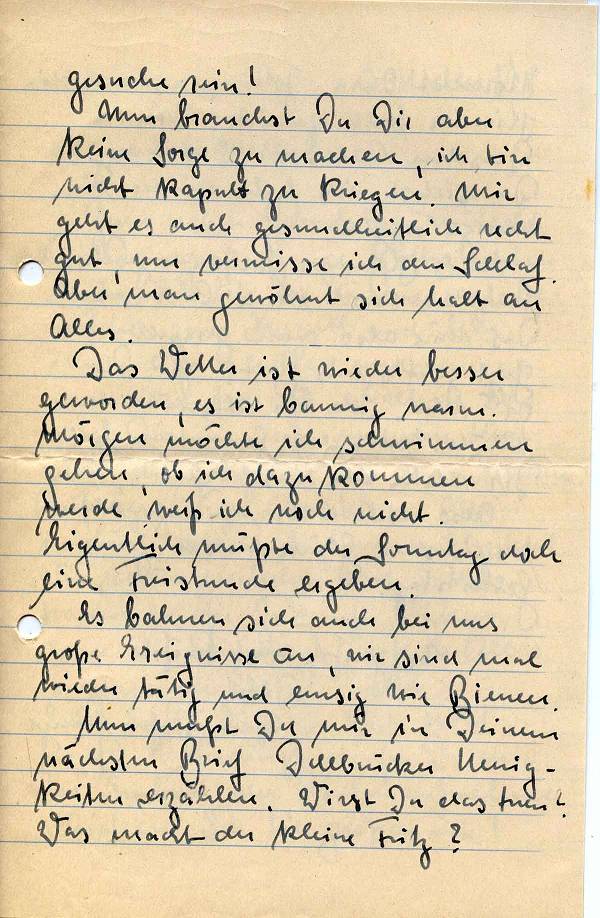 gesuche sein!
Nun brauchst Du Dir aber
keine Sorge zu machen, ich bin
nicht kaputt zu kriegen. Mir
geht es auch gesundheitlich recht
gut, nur vermisse ich den Schlaf.
Aber man gewöhnt sich halt an
Alles.
Das Wetter ist wieder besser
geworden, es ist bannig warm.
Morgen möchte ich schwimmen
gehen, ob ich dazu kommen
werde weiß ich noch nicht.
Eigentlich müßte der Sonntag doch
eine Freistunde ergeben.
Es bahnen sich auch bei uns
große Ereignisse an, wir sind mal
wieder tätig und emsig wie Bienen.
Nun mußt Du mir in Deinem
nächsten Brief Delbrücker Neuig-
keiten erzählen. Wirst Du das tun?
Was macht der kleine Fritz?